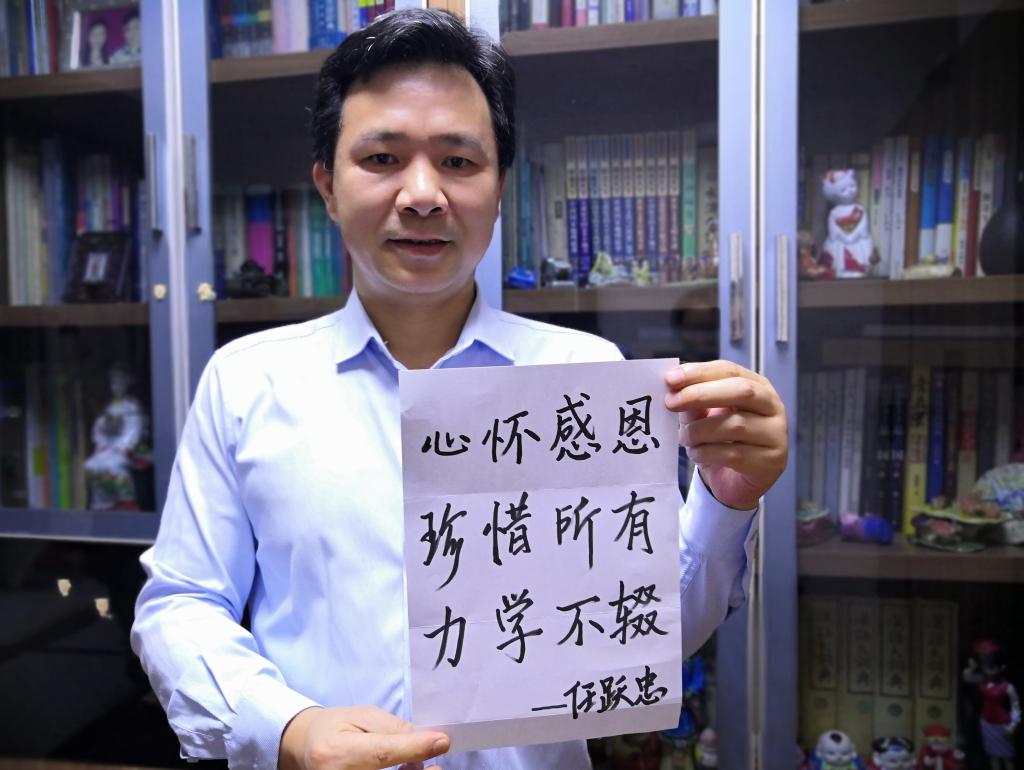 心怀感恩
珍惜所有
力学不辍
—任跃忠